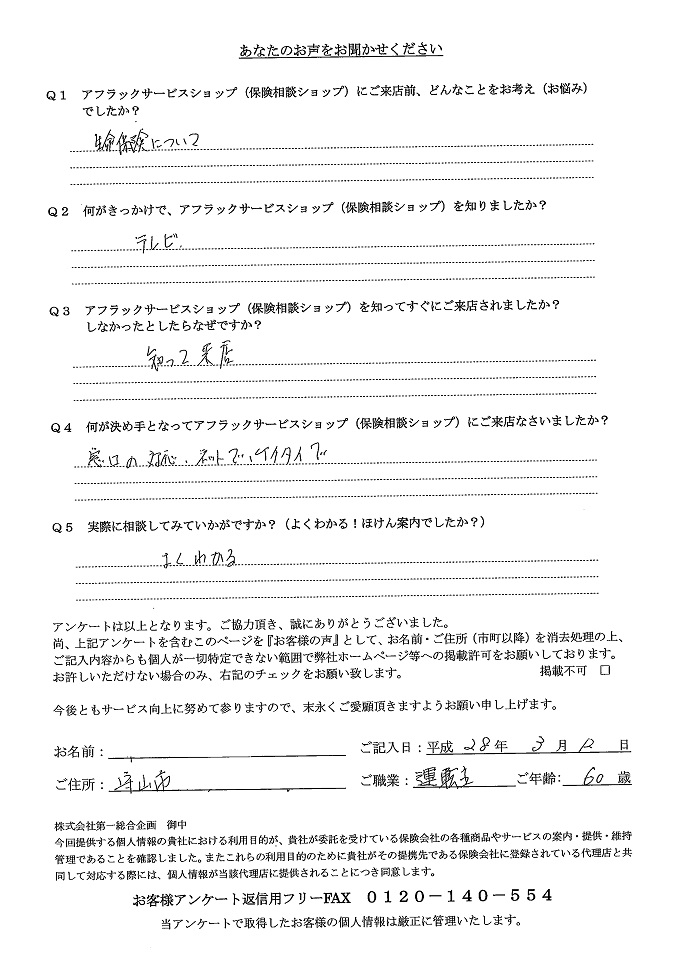 あなたのお声をお聞かせください
Q1 アフラックサービスショップ（保険相談ショップ）にご来店前、どんなことをお考え（お悩み）
でしたか？
生命保険について
Q2 何がきっかけで、アフラックサービスショップ（保険相談ショップ）を知りましたか？
テレビ.
Q3 アフラックサービスショップ（保険相談ショップ）を知ってすぐにご来店されましたか？
しなかったとしたらなぜですか？
知って来店
Q4 何が決め手となってアフラックサービスショップ（保険相談ショップ）にご来店なさいましたか？
窓口の対応、ネットで、ケイタイで
Q5 実際に相談してみていかがですか？（よくわかる！ほけん案内でしたか？）
よくわかる
アンケートは以上となります。ご協力頂き、誠にありがとうございました。
尚、上記アンケートを含むこのページを『お客様の声』として、お名前・ご住所（市町以降）を消去処理の上、
ご記入内容からも個人が一切特定できない範囲で弊社ホームページ等への掲載許可をお願いしております。
お許しいただけない場合のみ、右記のチェックをお願い致します。 掲載不可 □
今後ともサービス向上に努めて参りますので、末永くご愛顧頂きますようお願い申し上げます。
お名前： ご記入日：平成 28年 3月 日
ご住所： 山市 ご職業：運転士 ご年齢： 60 歳
株式会社第一総合企画 御中
今回提供する個人情報の貴社における利用目的が、貴社が委託を受けている保険会社の各種商品やサービスの案内・提供・維持
管理であることを確認しました。またこれらの利用目的のために貴社がその提携先である保険会社に登録されている代理店と共
同して対応する際には、個人情報が当該代理店に提供されることにつき同意します。
お客様アンケート返信用フリーFAX 0120－140－554
当アンケートで取得したお客様の個人情報は厳正に管理いたします。